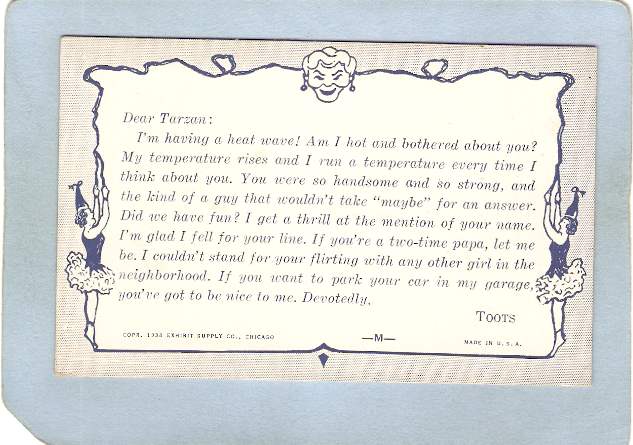 Dear Tarzan:
I'm having a heat wave! Am I hot and bothered about you?
My temperature rises and I run a temperature every time I
think about you. You were so handsome and so strong, and
the kind of a guy that wouldn't take "maybe" for an answer.
Did we have fun? I get a thrill at the mention of your name.
I'm glad I fell for your line. If you're a two-time papa, let me
be. I couldn't stand for your flirting with any other girl in the
neighborhood. If you want to park your car in my garage,
you've got to be nice to me. Devotedly,
TOOTS
COPR. 1938 EXHIBIT SUPPLY CO., CHICAGO
—M—
MADE IN U. S. A.